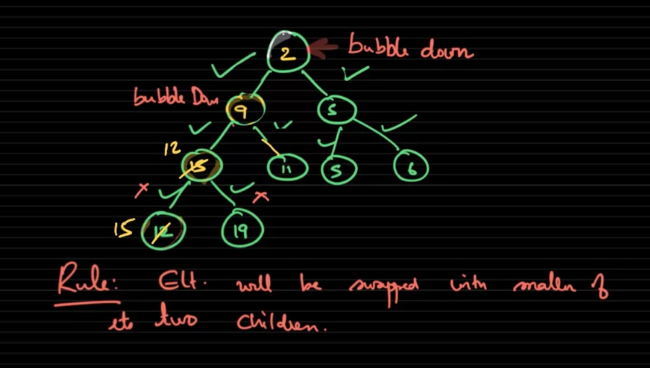 2 bubble down
bubble Dow 9 5
12 15 11 5 6
15 12 19
Rule: Elt. will be swapped with smaller of
its two children.